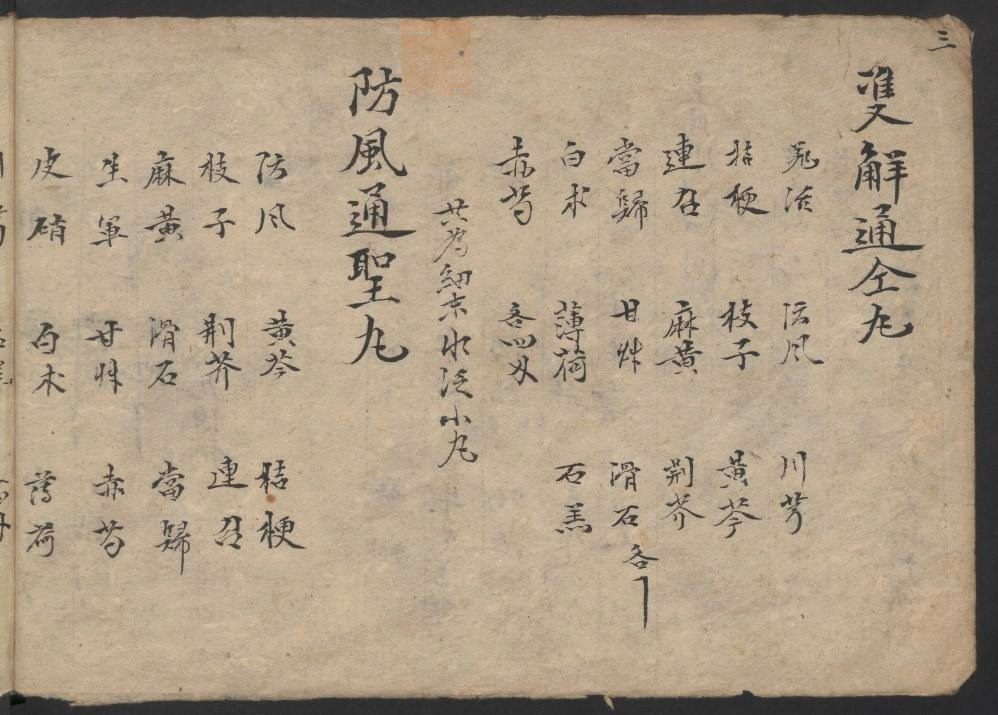 三
雙解通仝丸
羌活 防风 川芎
桔梗 枝子 黄芩
連召 麻黄 荆芥
當歸 甘艸 滑石 各
白术 薄荷 石羔
赤芍 各四
共為細末水泛小丸
防風通聖丸
防风 黄芩 桔梗
枝子 荆芥 連召
麻黄 滑石 當歸
生軍 甘艸 赤芍
皮硝 白术 薄荷